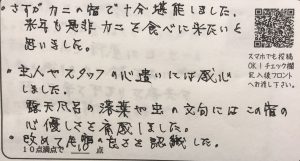 さすがカニの宿で十分堪能しました。
来年も是非カニを食べに来たいと
思いました。
・主人やスタッフの心遣いには感心
しました。
露天風呂の湯菜や虫の文句にはこの宿の
心優しさを実感しました。
・改めて居間の良さを認識した。
10点満点で 10 点
スマホでも投稿
OK!チェック欄
記入後フロント
へお渡し下さい。